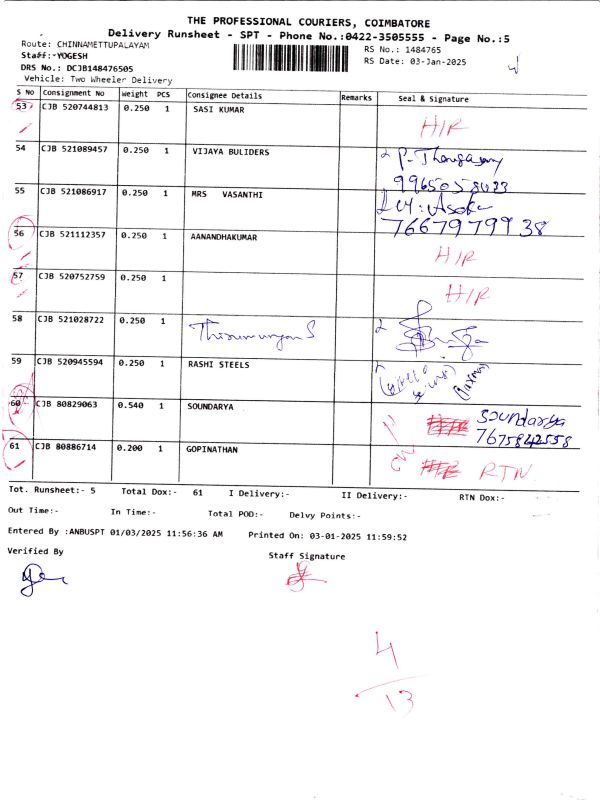 THE PROFESSIONAL COURIERS, COIMBATORE
Delivery Runsheet - SPT - Phone No.:0422-3505555 - Page No.:5
Route: CHINNAMETTUPALAYAM
RS No.: 1484765
Staff:-YOGESH
RS Date: 03-Jan-2025
DRS No.: DCJB148476505
Vehicle: Two Wheeler Delivery
S No Consignment No Weight PCS Consignee Details Remarks Seal & Signature
53 CJB 520744813 0.250 1 SASI KUMAR H/R
54 CJB 521089457 0.250 1 VIJAYA BULIDERS
55 CJB 521086917 0.250 1 MRS VASANTHI
7667979938
56 CJB 521112357 0.250 1 AANANDHAKUMAR H/R
57 CJB 520752759 0.250 1 H/R
58 CJB 521028722 0.250 1
59 CJB 520945594 0.250 1 RASHI STEELS
60 CJB 80829063 0.540 1 SOUNDARYA Soundarya
7675842558
61 CJB 80886714 0.200 1 GOPINATHAN RTN
Tot. Runsheet:- 5 Total Dox:- 61 I Delivery:- II Delivery:- RTN Dox:-
Out Time:- In Time:- Total POD:- Delvy Points:-
Entered By :ANBUSPT 01/03/2025 11:56:36 AM Printed On: 03-01-2025 11:59:52
Verified By Staff Signature
4
13